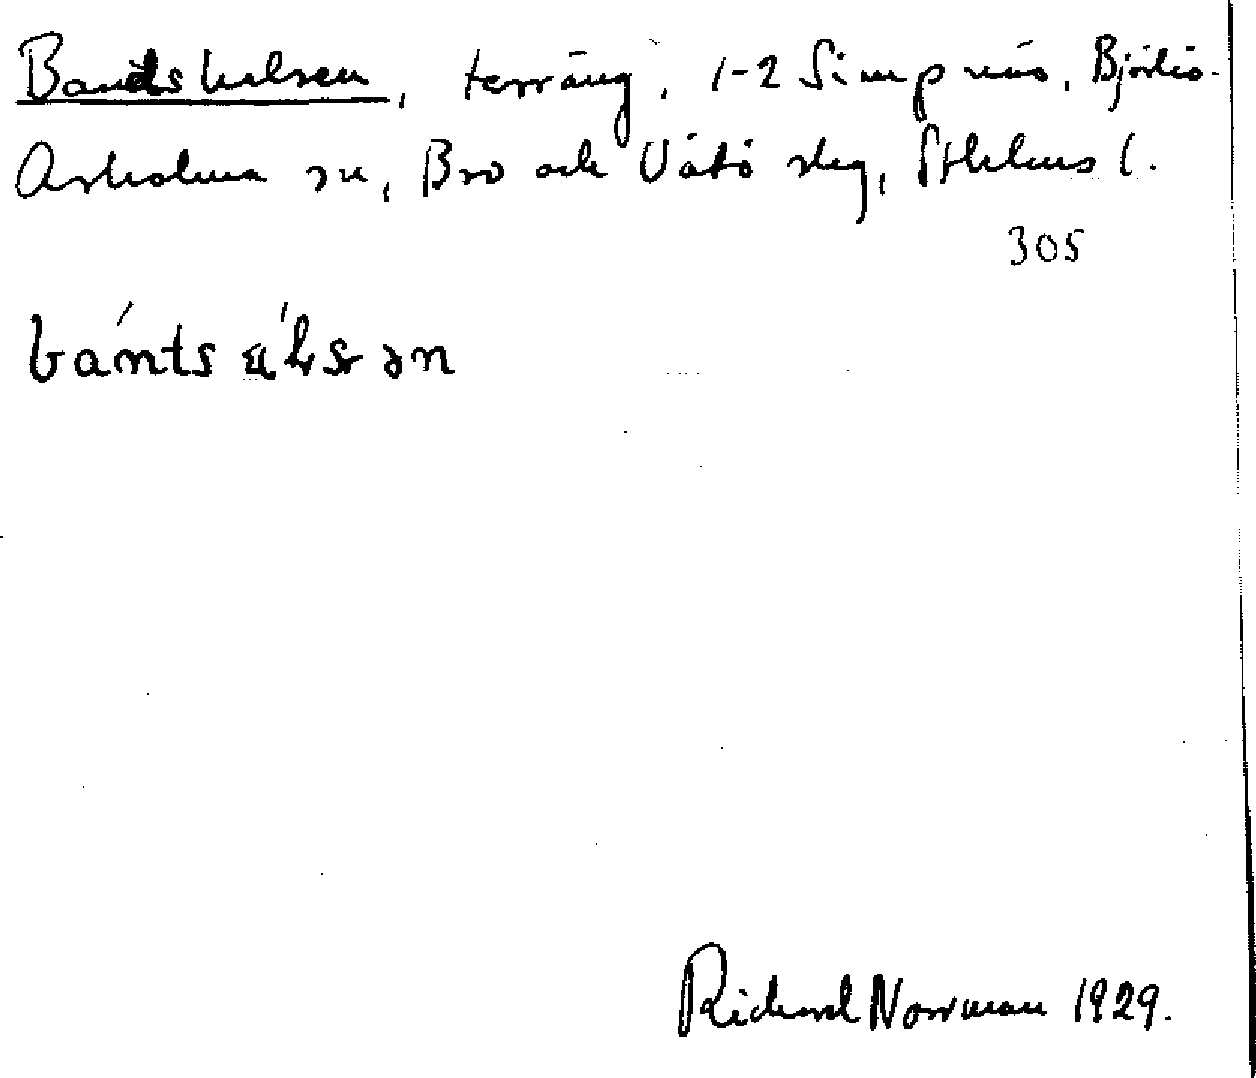 Bandshulsen, terräng, 1-2 Simpnäs, Björkö-
Arholma sn, Bro och Vätö skg, Sthlms l.
305
Richard Norrman 1929.